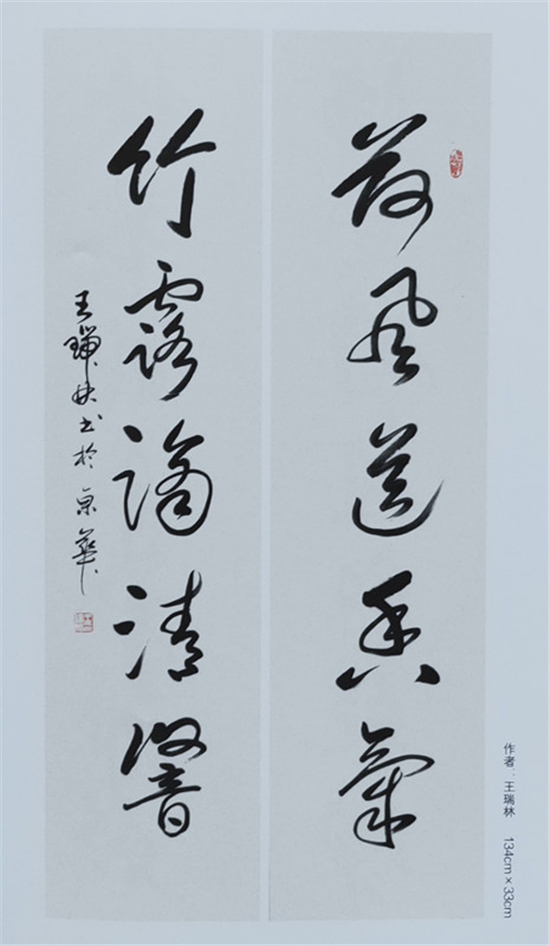 荷風送香氣
竹露滴清響
王瑞林书於京華
作者：王瑞林　134cm×33cm